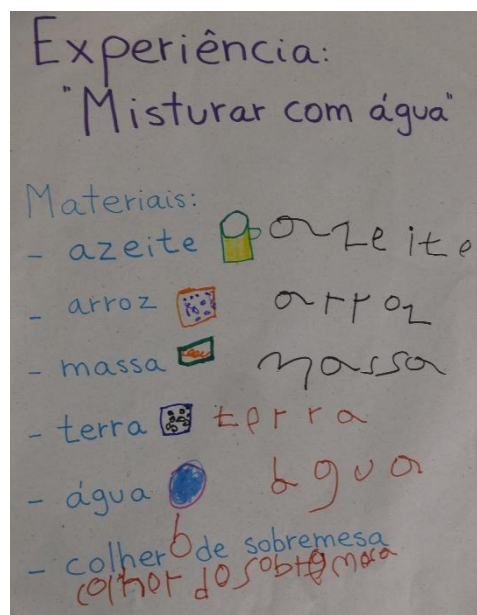 Experiência:
"Misturar com água"
Materiais:
- azeite azeite
- arroz arroz
- massa massa
- terra terra
- água água
- colher de sobremesa
colher do sobremesa